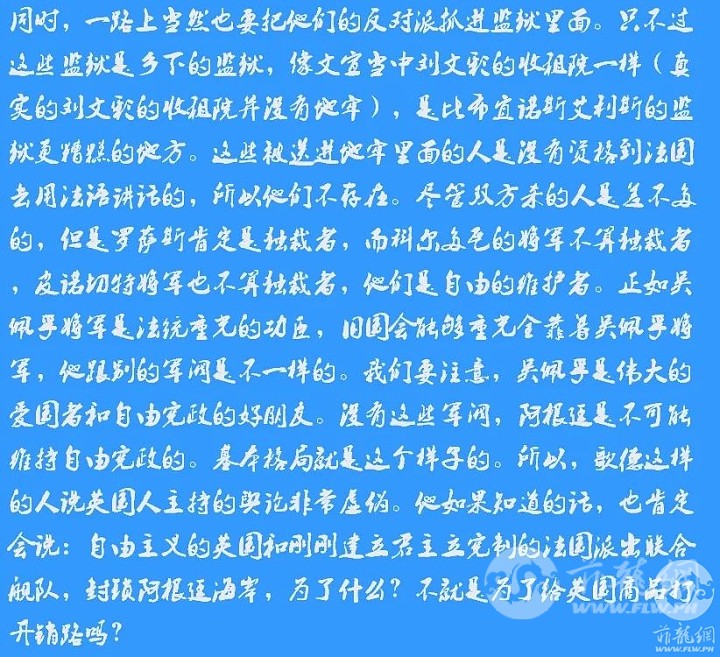 同时，一路上当然也要把他们的反对派抓进监狱里面。只不过
这些监狱是乡下的监狱，像文宣当中刘文彩的收租院一样（真
实的刘文彩的收租院并没有地牢），是比布宜诺斯艾利斯的监
狱更糟糕的地方。这些被送进地牢里面的人是没有资格到法国
去用法语讲话的，所以他们不存在。尽管双方杀的人是差不多
的，但是罗萨斯肯定是独裁者，而科尔多瓦的将军不算独裁者
，皮诺切特将军也不算独裁者，他们是自由的维护者。正如吴
佩孚将军是法统重光的功臣，旧国会能够重光全靠着吴佩孚将
军，他跟别的军阀是不一样的。我们要注意，吴佩孚是伟大的
爱国者和自由宪政的好朋友。没有这些军阀，阿根廷是不可能
维持自由宪政的。基本格局就是这个样子的。所以，歌德这样
的人说英国人主持的舆论非常虚伪。他如果知道的话，也肯定
会说：自由主义的英国和刚刚建立君主立宪制的法国派出联合
舰队，封锁阿根廷海岸，为了什么？不就是为了给英国商品打
开销路吗？
菲龍网
WWW.FLW.PH
菲龍網
WWW.FLW.PH